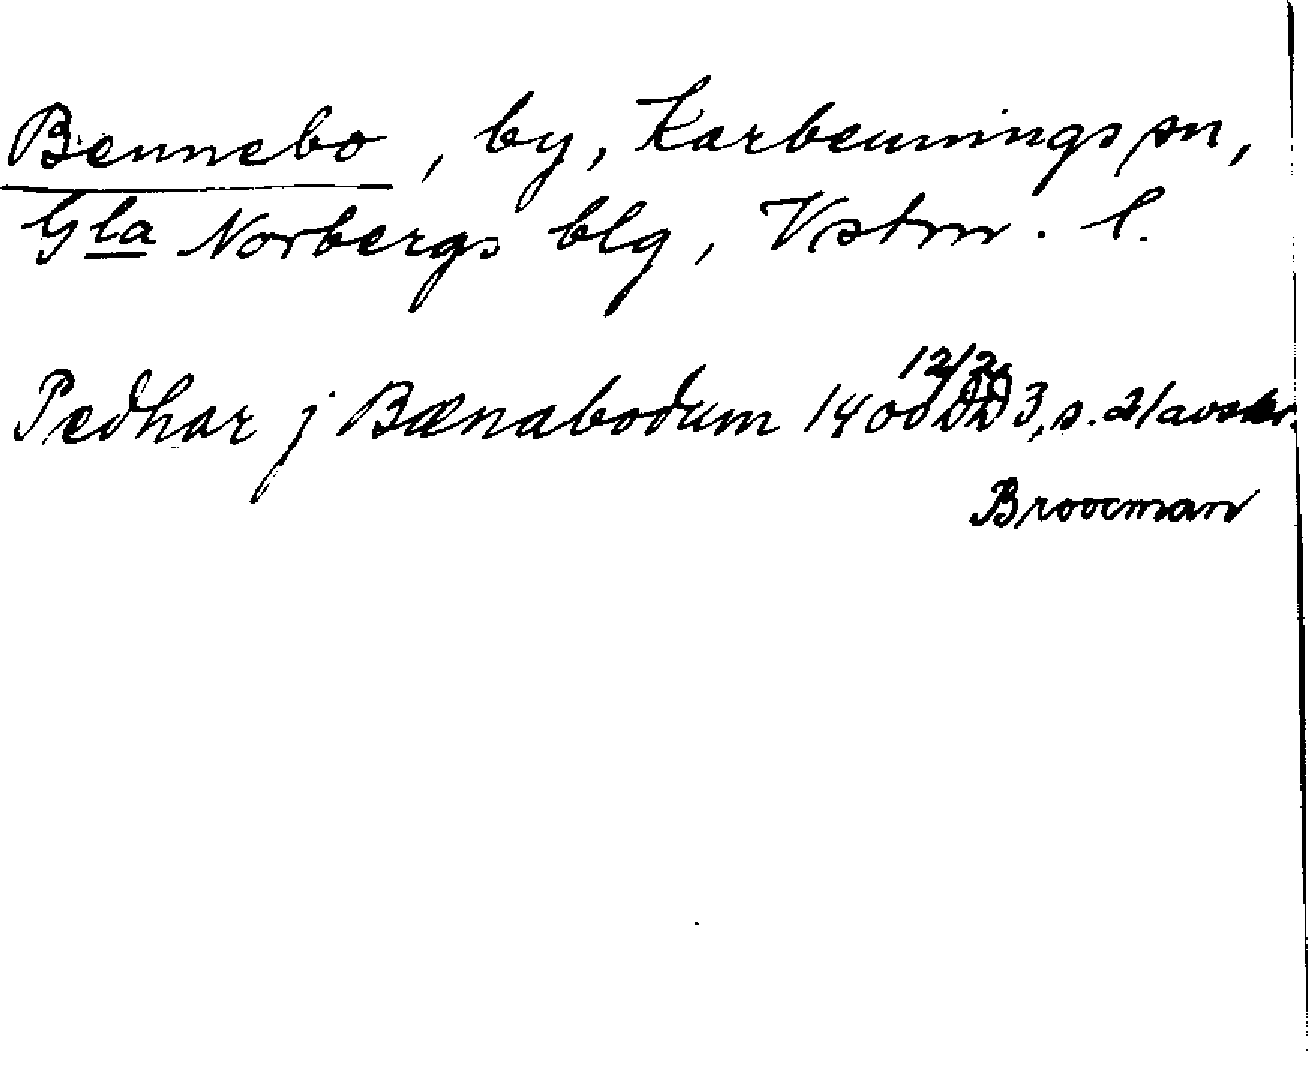 Bennebo, by, Karbennings sn,
Gla Norbergs blg, Vstm. l.
Pædhar j Bænabodum 1400 12/2 DD 3, s. 21 avskr.
Broocman